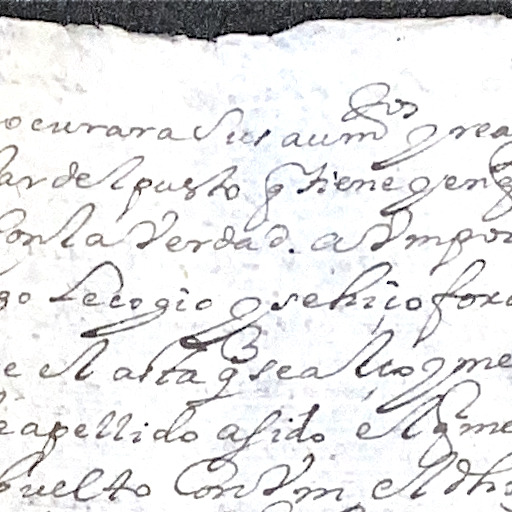 ocurara sus aum^tos y rea
ar del pusto q tiene y en
con la Verdad. a Vmpor
go se cogio y se hiço for
e el asta q sea llo y me
apellido asido el q me
buelto Con Vm el dho